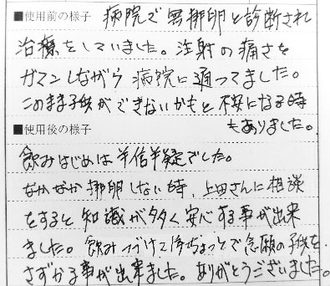 ■使用前の様子 病院で無排卵と診断され
治療をしていました。注射の痛さを
ガマンしながら病院に通ってました。
このまま子供ができないかもと不安になる時
もありました。
■使用後の様子
飲みはじめは半信半疑でした。
なかなか排卵しない時、上田さんに相談
をすると知識が多く安心する事が出来
ました。飲みつづけて1年ちょっとで念願の子供を
さずかる事が出来ました。ありがとうございました。